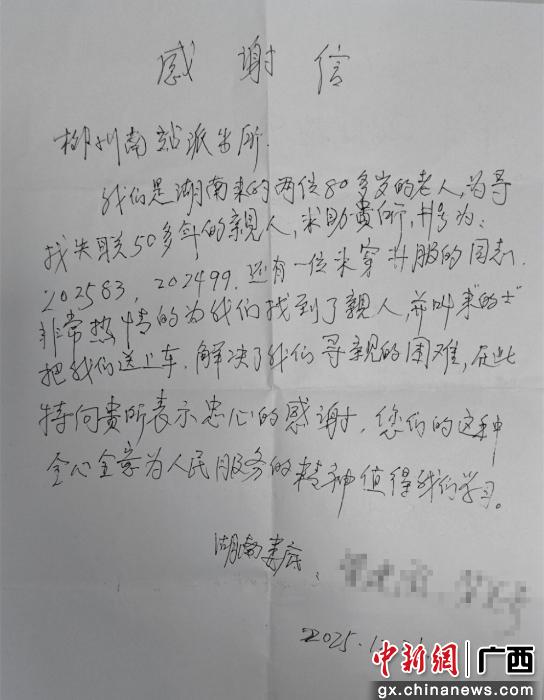 感谢信
柳州南站派出所.
我们是湖南来的两位80多岁的老人,为寻
找失联50多年的亲人,求助贵所,井号为:
202583,202499.还有一位未穿井服的同志.
非常热情的为我们找到了亲人,并叫来"的士"
把我们送上车.解决了我们寻亲的困难,在此
特向贵所表示忠心的感谢.您们的这种
全心全意为人民服务的精神值得我们学习。
湖南娄底
2025.1
中新网 广西
gx.chinanews.com